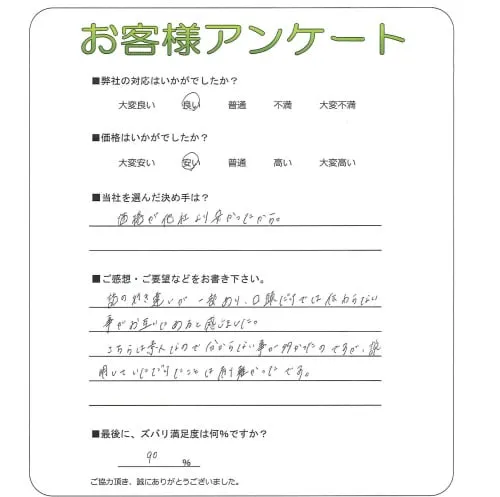 お客様アンケート
■弊社の対応はいかがでしたか？
大変良い 良い 普通 不満 大変不満
■価格はいかがでしたか？
大変安い 安い 普通 高い 大変高い
■当社を選んだ決め手は？
価格が他社より安かったから。
■ご感想・ご要望などをお書き下さい。
き違いが一番あり、口頭だけでは伝わらない
事がお互いにあると感じました。
こちらは素人なので分からない事が多かったのですが、説
明していただけたことは有難かったです。
■最後に、ズバリ満足度は何％ですか？
90 ％
ご協力頂き、誠にありがとうございました。